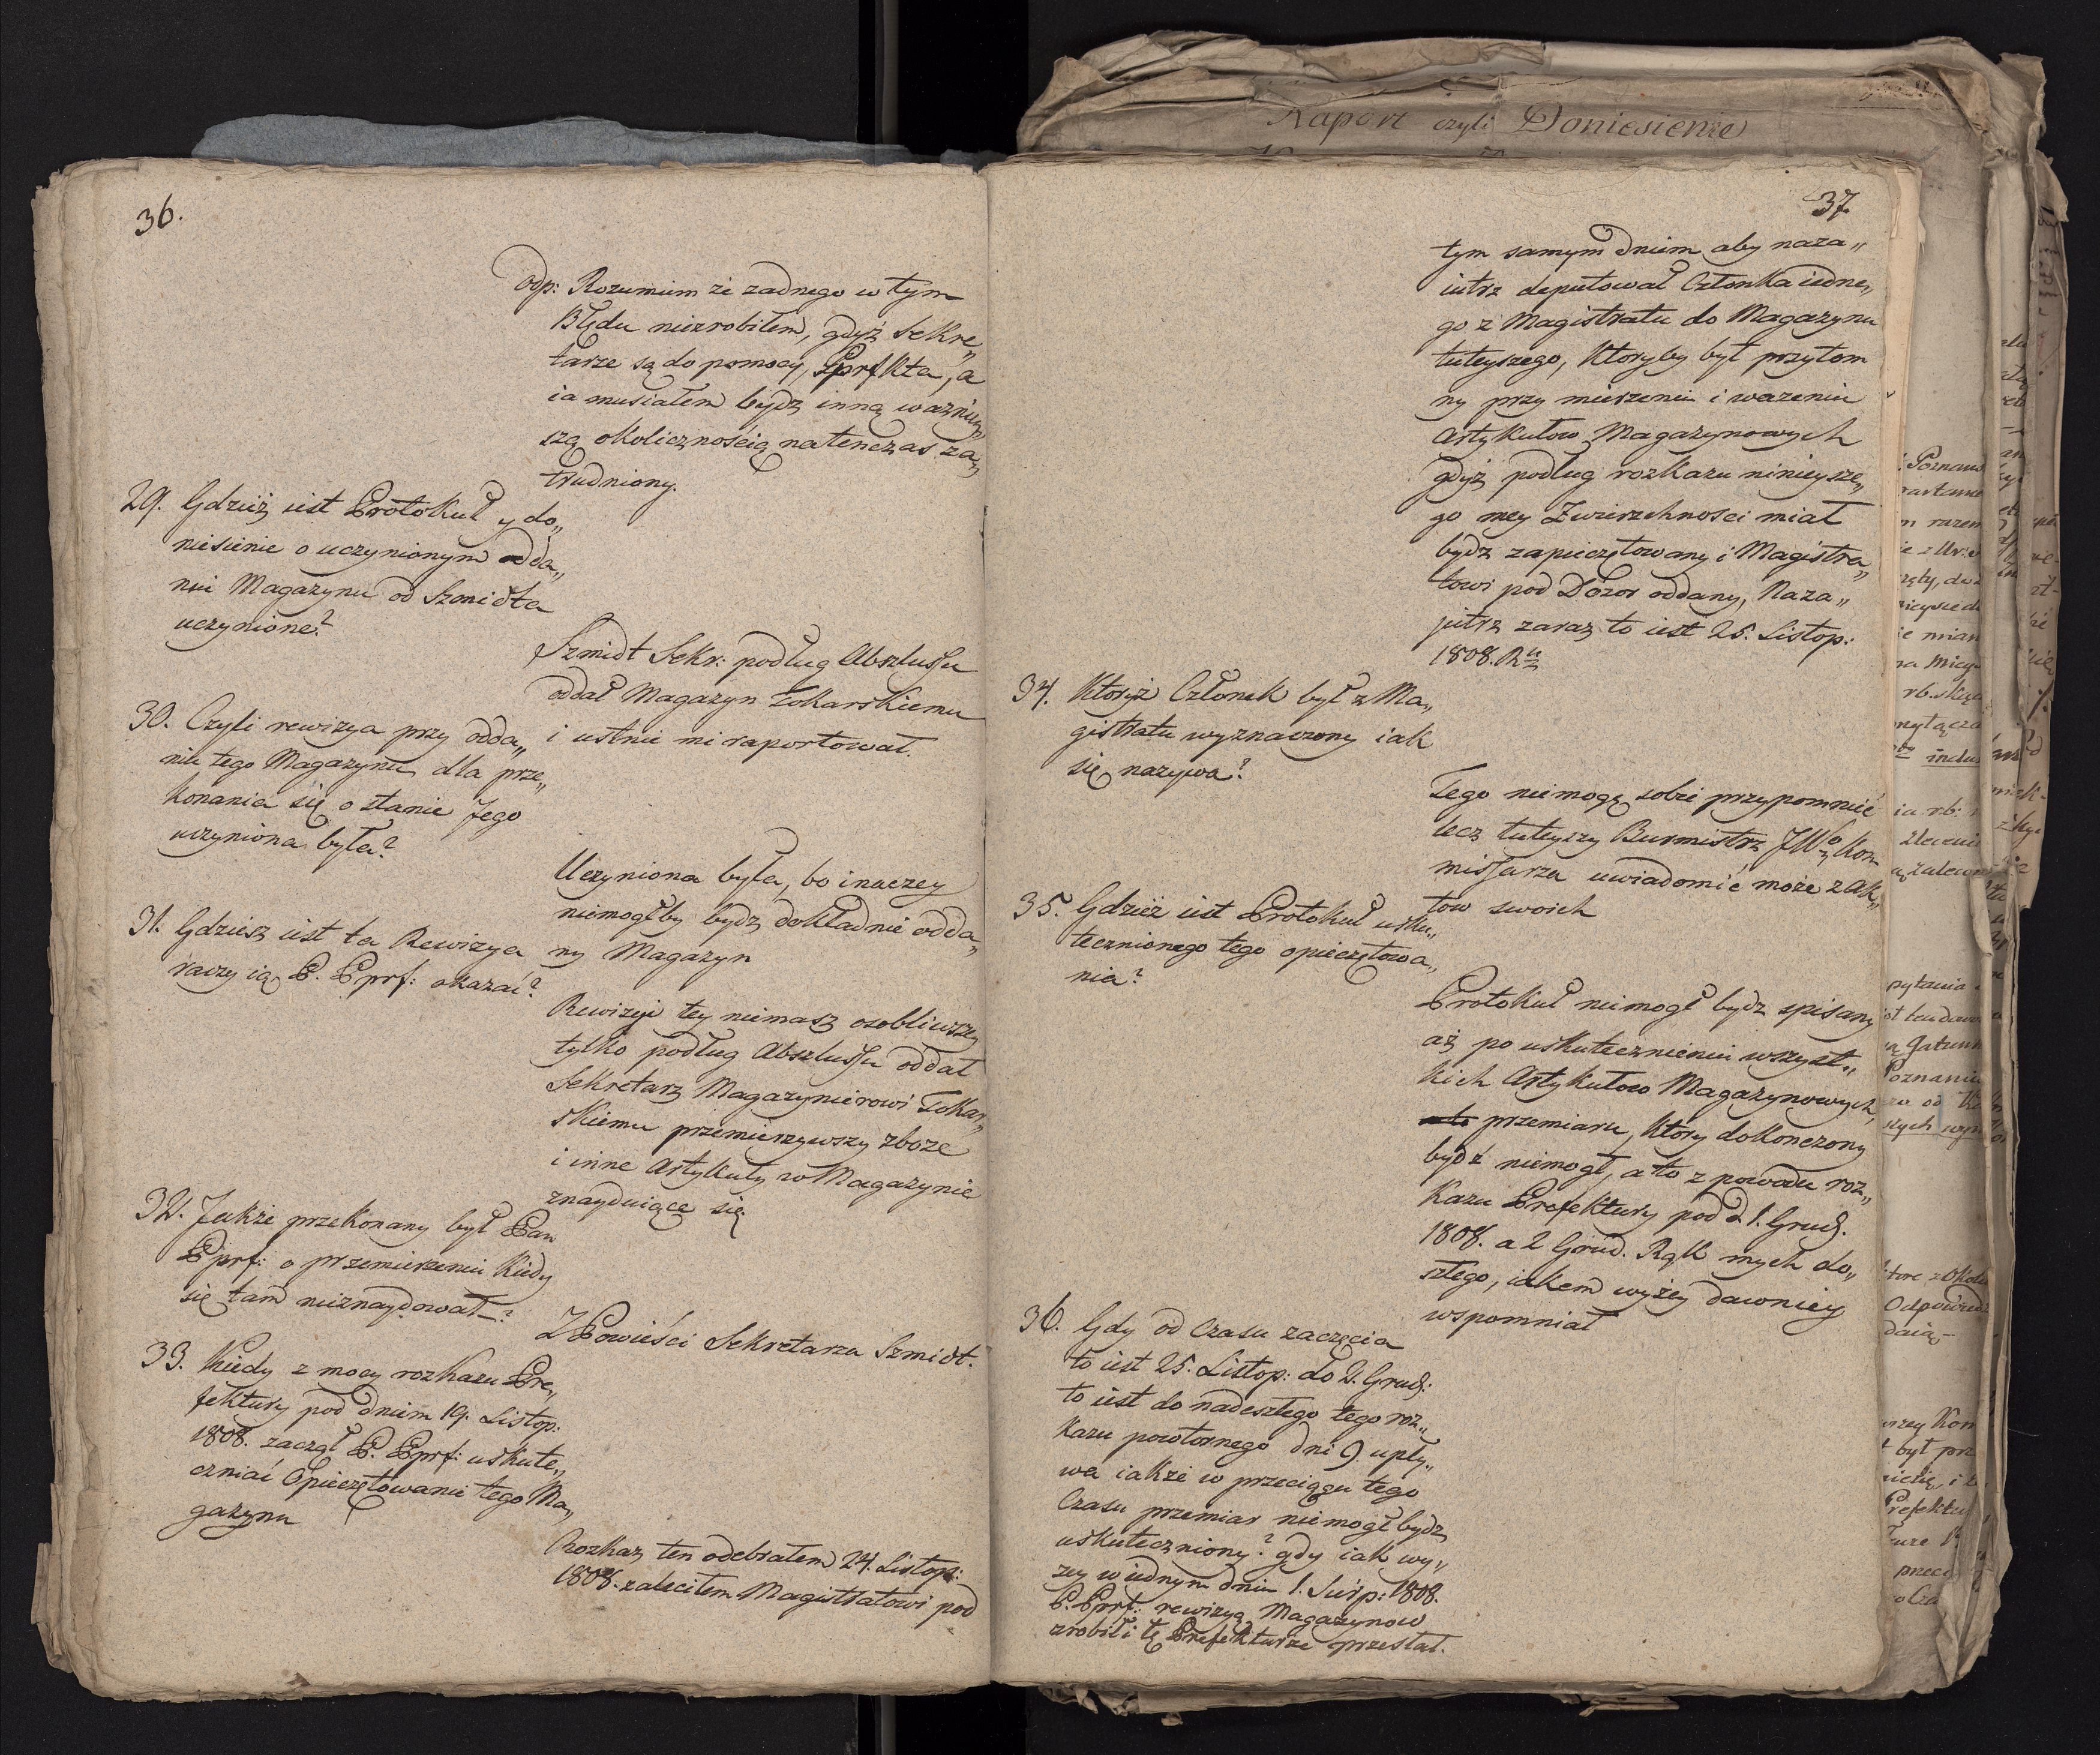 36.
odp: Rozumiem że żadnego w tym
Błędu niezrobiłem, gdyż Sekre„
tarze są do pomocy, Pprfkta, a
ia musiałem bydz inną ważniey„
szą okolicznością natenczas za„
trudniony.
29. Gdzież iest Protokuł y do„
niesienie o uczynionym odda„
niu Magazynu od Szmidta
uczynione?
Szmidt Sekr: podług Abszlussu
oddał Magazyn Tokarskiemu
i ustnie mi raportował.
30. Czyli rewizya przy odda„
niu tego Magazynu dla prze„
konania się o stanie Jego
uczyniona była?
Uczyniona była, bo inaczey
niemogłby bydz dokładnie odda„
ny Magazyn
31. Gdziesz iest ta Rewizya
raczy ią P. Pprf: okazać?
Rewizyi tey niemasz osobliwszey
tylko podług Abszlussu oddał
Sekretarz Magazynierowi Tokar„
skiemu przemierzywszy zboże
i inne Artykuły w Magazynie
znayduiące się.
32. Jakże przekonany był Pan
Pprf: o przemierzeniu kiedy
się tam nieznaydował–?
Z Powieści Sekretarza Szmidt.
33. Kiedy z mocy rozkazu Pre„
fektury pod dniem 19. Listop:
1808. zaczął P. Pprf: uskute„
czniać Opieczętowanie tego Ma„
gazynu
Rozkaz ten odebrałem 24. Listop:
1808. zaleciłem Magistratowi pod
Raport czyli Doniesienie
37.
tym samym dniem aby naza„
iutrz deputował Członka iedne„
go z Magistratu do Magazynu
tuteyszego, Któryby był przytom
ny przy mierzeniu i ważeniu
Artykułow Magazynowych
gdyż podług rozkazu ninieysze„
go mey Zwierzchności miał
bydz zapieczętowany i Magistra„
towi pod Dozor oddany, Naza„
jutrz zaraz to iest 25. Listop:
1808. Ru
34. Któryż Członek był z Ma„
gistratu wyznaczony iak
się nazywa?
Tego niemogę sobie przypomnieć
lecz tuteyszy Burmistrz JWo Kom
missarza uwiadomić może z Ak„
tow swoich
35. Gdzież iest Protokuł usku„
tecznionego tego opieczętowa„
nia?
Protokuł niemogł bydz spisany
aż po uskutecznieniu wszyst„
kich Artykułow Magazynowych
przemiaru, ktory dokonczony
bydź niemogł, a to z powodu roz„
kazu Prefektury pod d 1. Grud.
1808. a 2 Grud. Rąk mych do„
szłego, iakem wyżey dawniey
wspomniał
36. Gdy od Czasu zaczęcia
to iest 25. Listop: do 2. Grud:
to iest do nadeszłego tego roz„
kazu powtornego dni 9. upły„
wa iakże w przeciągu tego
Czasu przemiar niemogł bydz
uskuteczniony? gdy iak wy„
żey w iednym dniu 1. Sierp: 1808.
P. Pprf: rewizyą Magazynow
zrobił i tę Prefekturze przesłał.